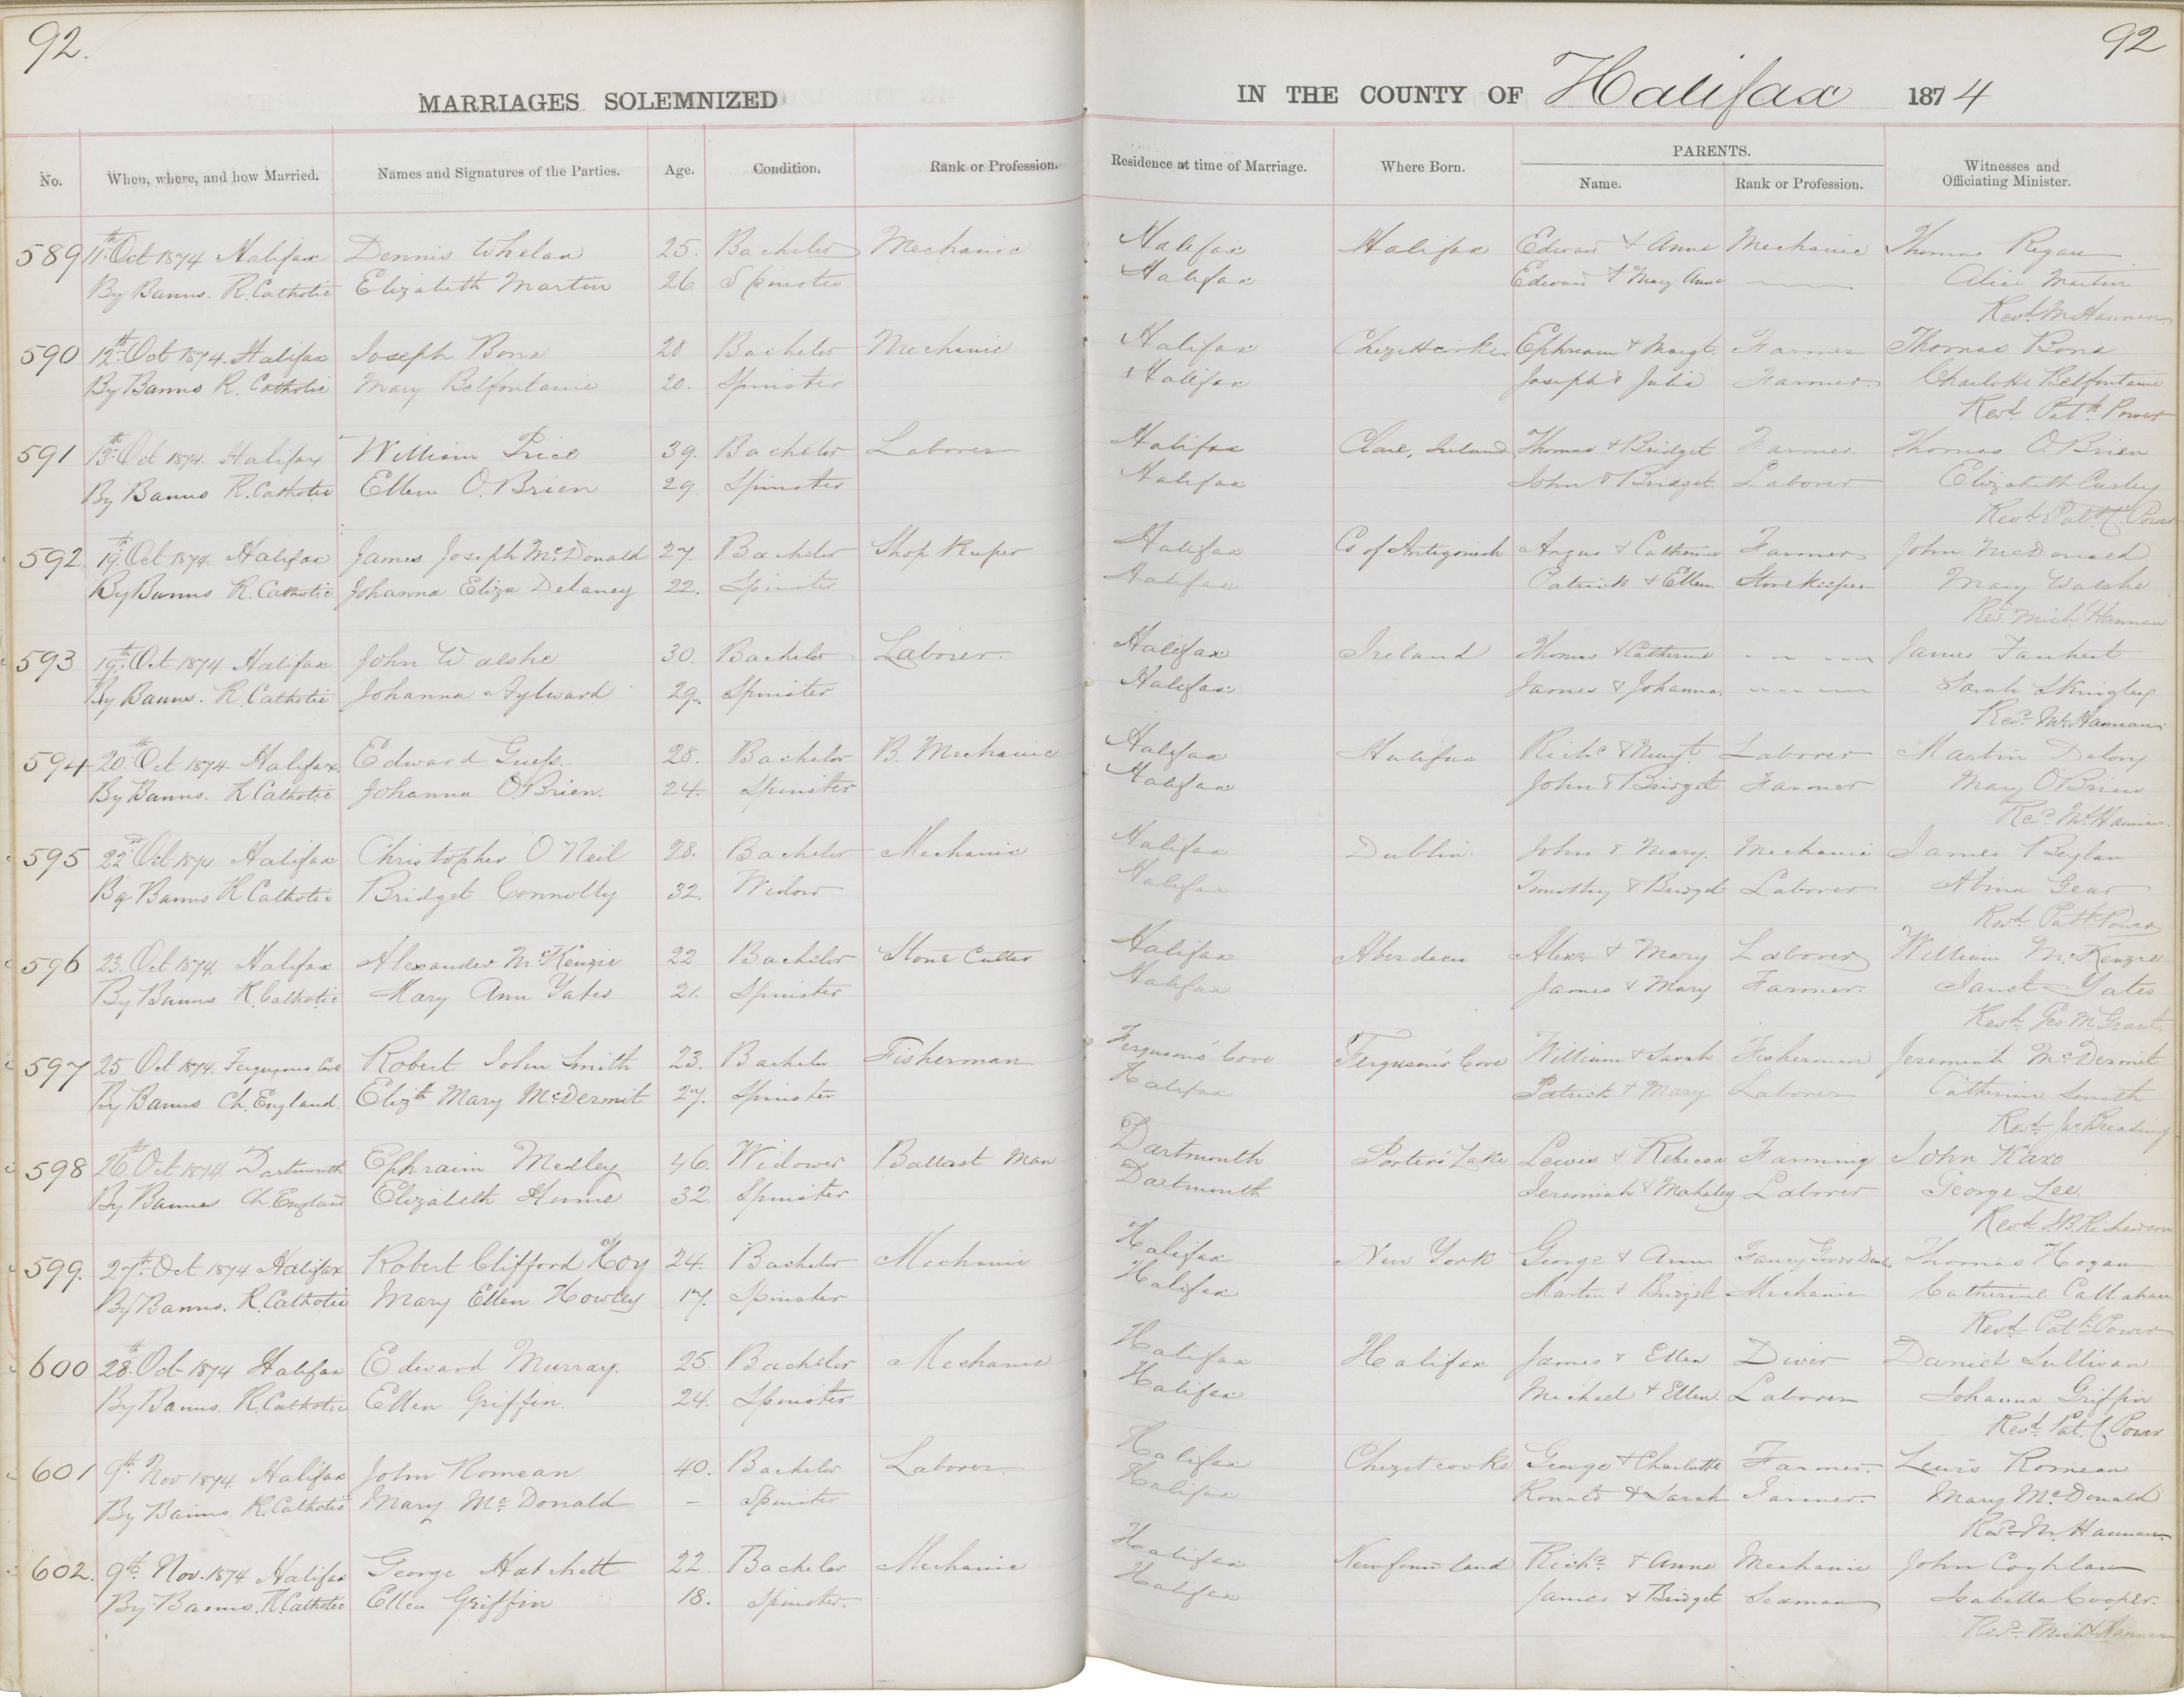 92. 92
MARRIAGES SOLEMNIZED IN THE COUNTY OF Halifax 1874
No. When, where, and how Married. Names and Signatures of the Parties. Age. Condition. Rank or Profession. Residence at time of Marriage. Where Born. PARENTS. Name. Rank or Profession. Witnesses and Officiating Minister.
589 11th Oct 1874 Halifax Dennis Whelan 25. Bachelor Mechanic Halifax Halifax Edward & Anne Mechanic Thomas Regan
By Banns. R. Catholic Elizabeth Martin 26 Spinster Halifax Edward & Mary Anne Alice Martin
Revd. M Hannan
590 12th Oct 1874. Halifax Joseph Bona 28 Bachelor Mechanic Halifax Chezettcooke Ephraim & Margt. Farmer Thomas Bona
By Banns R. Catholic Mary Belfontaine 20. Spinster Halifax Joseph & Julia Farmer. Charlotte Belfontaine
Revd. Patk. Power
591 13th Oct 1874. Halifax William Price 39. Bachelor Laborer Halifax Clare, Ireland Thomas & Bridget Farmer. Thomas O. Brien
By Banns R. Catholic Ellen O. Brien 29 Spinster Halifax John & Bridget Laborer Elizabeth Curley
Revd. Patk C. Power
592 19th Oct 1874. Halifax James Joseph McDonald 27. Bachelor Shop Keeper Halifax Co of Antigonish Angus & Catherine Farmer John McDonald
By Banns R. Catholic Johanna Eliza Delaney 22. Spinster Halifax Patrick & Ellen Storekeeper Mary Walshe
Rev. Michl Hannan
593 19th Oct 1874 Halifax John Walshe 30. Bachelor Laborer. Halifax Ireland Thomas & Catherine James
By Banns. R. Catholic Johanna Aylward 29. Spinster Halifax James & Johanna. Sarah Skingley
Revd. Ml. Hannan
594 20th Oct 1874 Halifax. Edward Guess. 28. Bachelor B. Mechanic Halifax Halifax Richd & Margt. Laborer Martin Delory
By Banns. R Catholic Johanna O.Brien. 24. Spinster Halifax John & Bridget Farmer Mary O'Brien
Revd. Ml. Hannan
595 22nd Oct 1874 Halifax Christopher O Neil 28. Bachelor Mechanic Halifax Dublin. John & Mary. Mechanic James Boylan
By Banns R Catholic Bridget Connolly 32. Widow Halifax Timothy & Bridget Laborer Abina Gear
Revd. Patk Power
596 23. Oct 1874. Halifax Alexander McKenzie 22 Bachelor Stone Cutter Halifax Aberdeen Alexr & Mary Laborer William McKenzie
By Banns R. Catholic Mary Ann Yates 21. Spinster Halifax James & Mary Farmer. Janet Yates
Revd. Geo M Grant
597 25 Oct 1874. Fergusons Cove Robert John Smith 23. Bachelor Fisherman Ferguson's Cove Ferguson's Cove William & Sarah Fisherman Jeremiah McDermit
By Banns Ch. England. Elizth Mary McDermit 27. Spinster Halifax Patrick & Mary Laborer Catherine Smith
Revd. Jas Breading
598 26th Oct 1874 Dartmouth Ephraim Medley 46. Widower Ballast Man Dartmouth Porter's Lake Lewis & Rebecca Farming John Karo
By Banns Ch. England Elizabeth Hume 32. Spinster Dartmouth Jeremiah & Mahaley Laborer George Lee.
Revd. J B Richardson
599. 27th Oct 1874 Halifax Robert Clifford Hoy 24. Bachelor Mechanic Halifax New York George & Ann Fancy Goods Dealer Thomas Hogan
By Banns. R. Catholic Mary Ellen Howley 17. Spinster Halifax Martin & Bridget Mechanic Catherine Callahan
Revd. Patk Power
600 28th Oct 1874 Halifax Edward Murray. 25. Bachelor Mechanic Halifax Halifax James & Ellen Diver Daniel Sullivan
By Banns. R. Catholic Ellen Griffin. 24. Spinster Halifax Michael & Ellen. Laborer Johanna Griffin
Revd. Pat. C. Power
601 9th Nov 1874. Halifax John Romean 40. Bachelor Laborer. Halifax Chezetcooke George & Charlotte Farmer. Lewis Romean
By Banns. R. Catholic Mary McDonald - Spinster Halifax Ronald & Sarah Farmer. Mary McDonald
Revd. M. Hannan.
602. 9th Nov. 1874 Halifax George Hatchett 22 Bachelor Mechanic Halifax Newfoundland Richd. & Anne Mechanic John Coghlan
By Banns. R. Catholic Ellen Griffin 18. Spinster. Halifax James & Bridget Seaman Isabella Cooper.
Revd. Michl Hannan